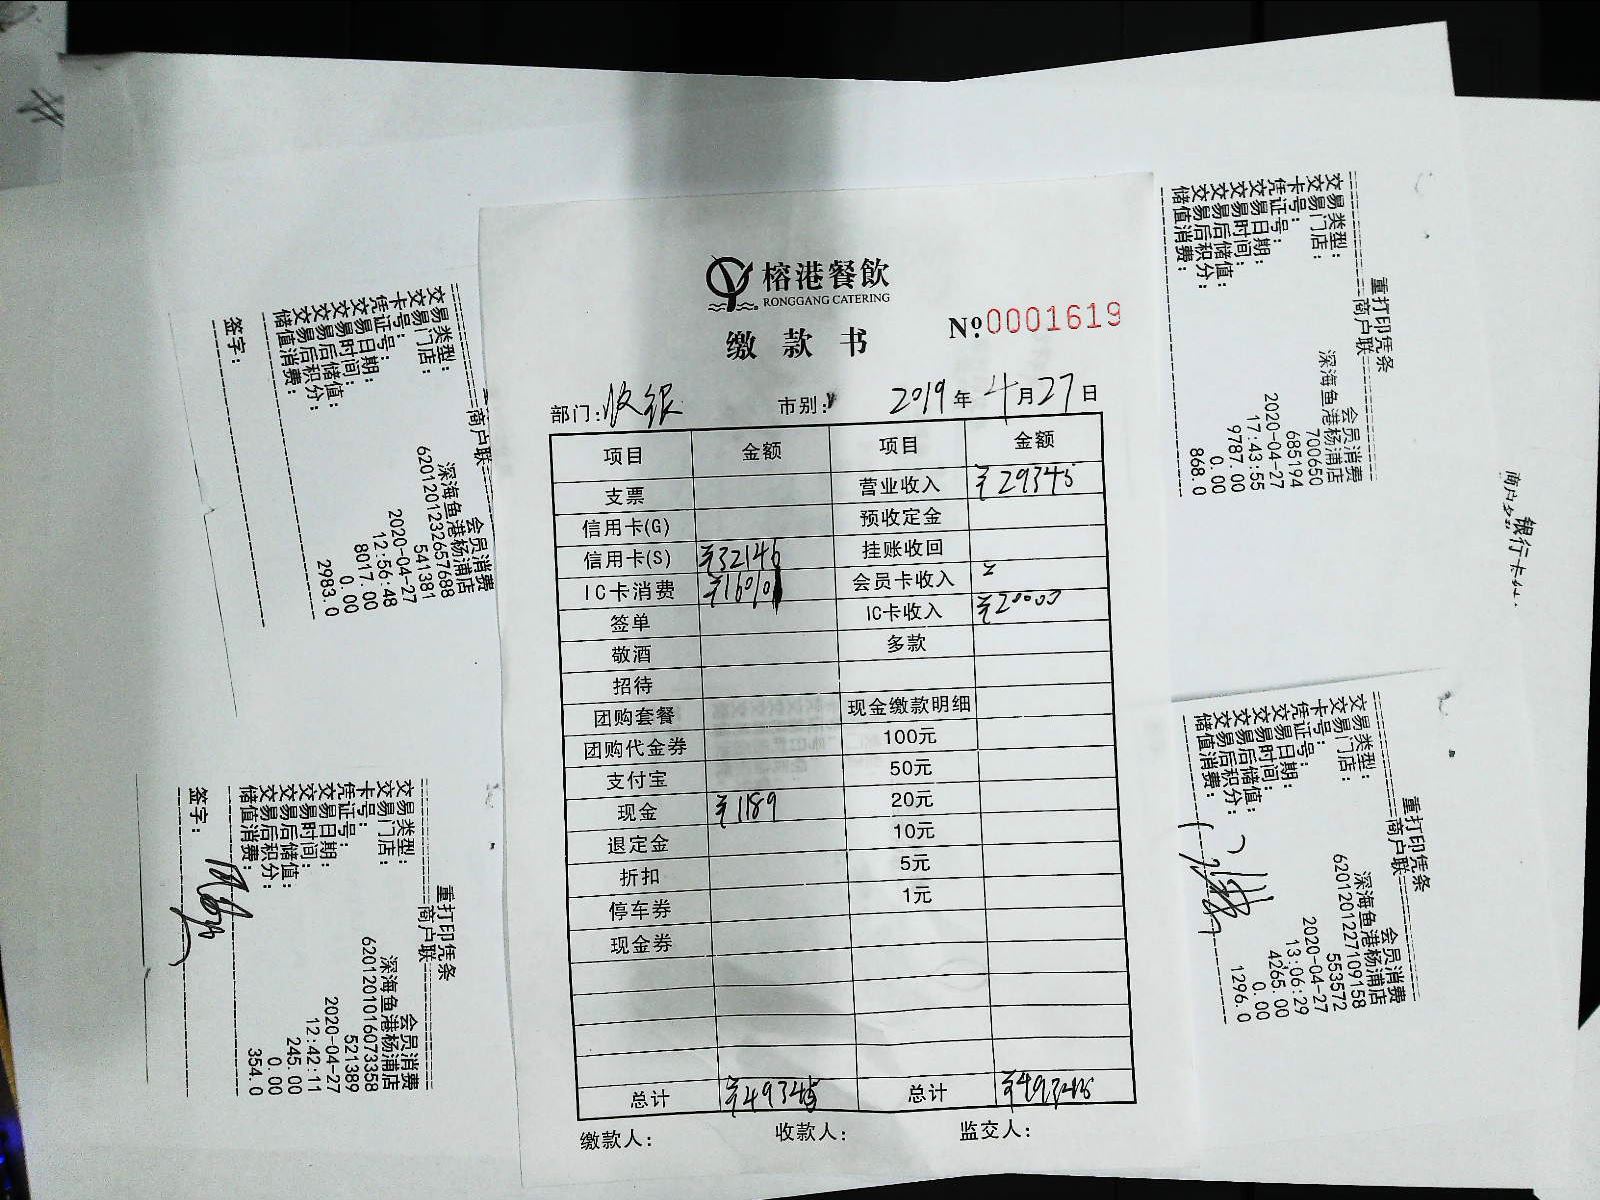 榕港餐飲
RONGGANG CATERING
缴款书
Nº:0001619
部门:收银 市别: 2019年4月27日
项目 金额 项目 金额
支票 营业收入 ¥29345
信用卡(G) 预收定金
信用卡(S) ¥32146 挂账收回
IC卡消费 ¥16010 会员卡收入
签单 IC卡收入 ¥20000
敬酒 多款
招待
团购套餐 现金缴款明细
团购代金券 100元
支付宝 50元
现金 ¥1189 20元
退定金 10元
折扣 5元
停车券 1元
现金券
总计 ¥49345 总计 ¥49345
缴款人: 收款人: 监交人:
商户联
交易类型: 会员消费
交易门店: 深海鱼港杨浦店
卡号: 6201201232657688
凭证号: 541381
交易日期: 2020-04-27
交易时间: 12:56:48
交易后储值: 8017.00
交易后积分: 0.00
储值消费: 2983.0
签字:
重打印凭条
商户联
交易类型: 会员消费
交易门店: 深海鱼港杨浦店
卡号: 6201201016073358
凭证号: 521389
交易日期: 2020-04-27
交易时间: 12:42:11
交易后储值: 245.00
交易后积分: 0.00
储值消费: 354.0
签字:
重打印凭条
商户联
交易类型: 会员消费
交易门店: 深海鱼港杨浦店
卡号: 700650
凭证号: 685194
交易日期: 2020-04-27
交易时间: 17:43:55
交易后储值: 9787.00
交易后积分: 0.00
储值消费: 868.0
重打印凭条
商户联
交易类型: 会员消费
交易门店: 深海鱼港杨浦店
卡号: 6201201227109158
凭证号: 553572
交易日期: 2020-04-27
交易时间: 13:06:29
交易后储值: 4265.00
交易后积分: 0.00
储值消费: 1296.0
银行卡